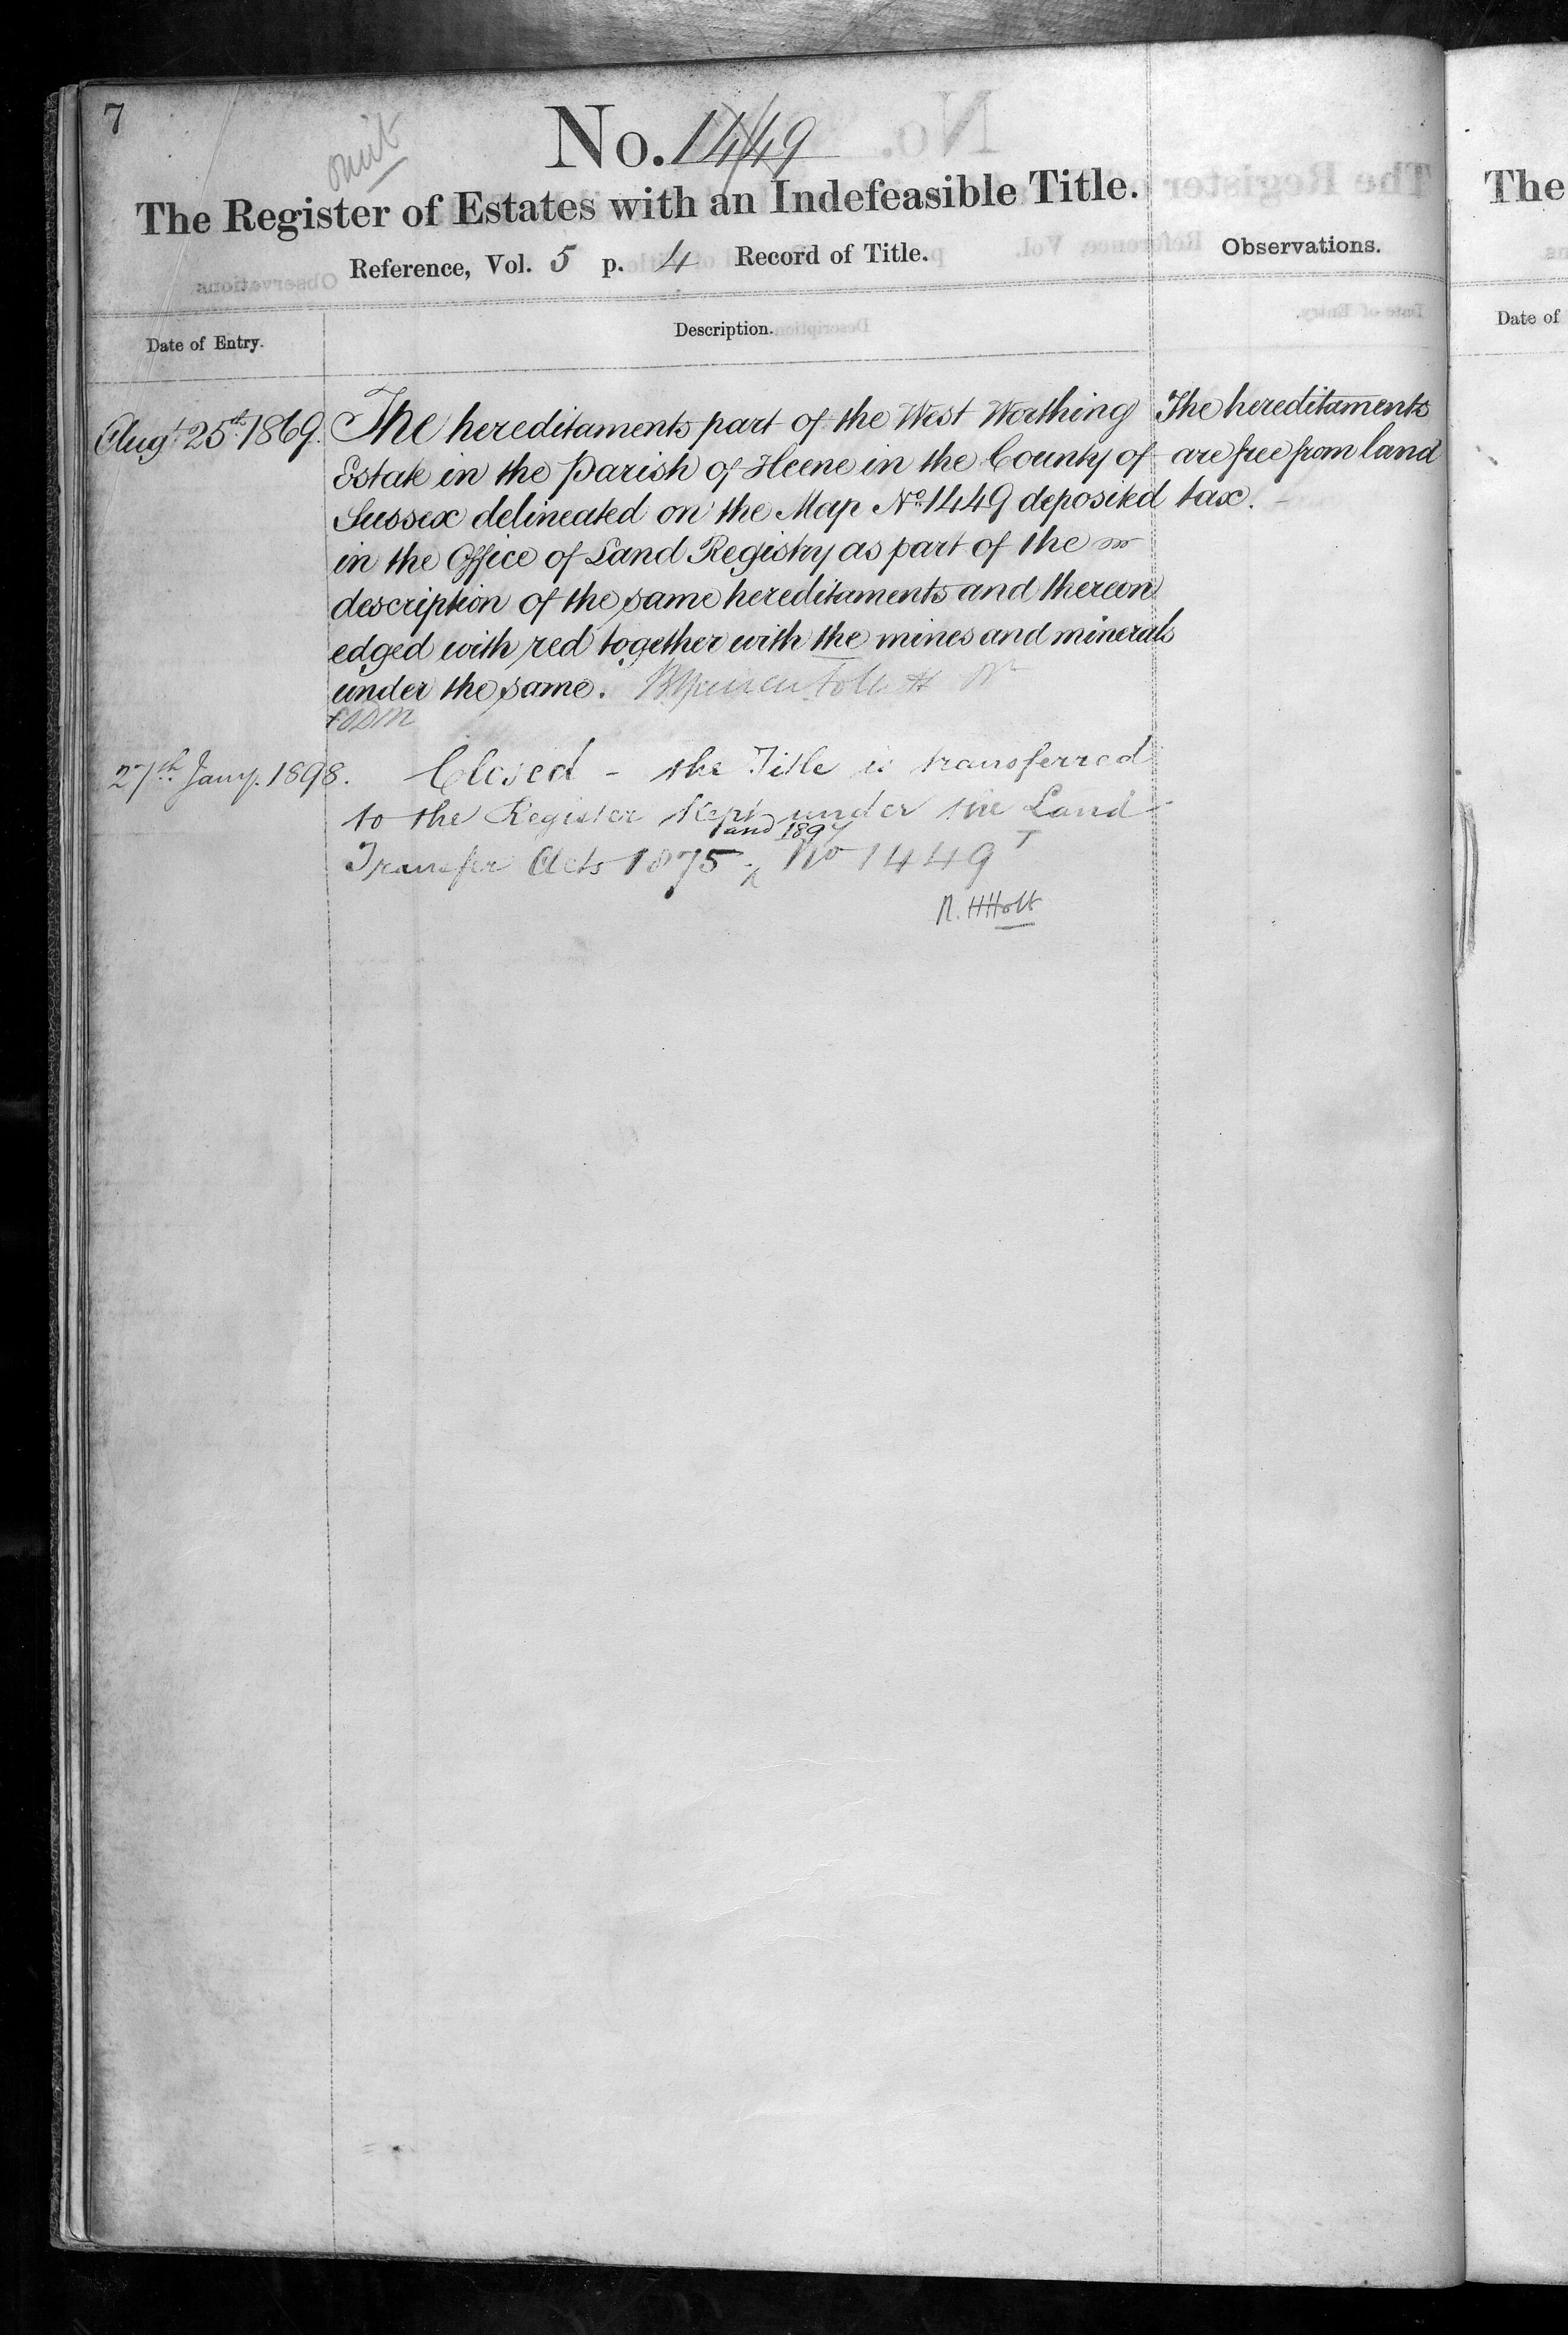 7
omit
No. 1449
The Register of Estates with an Indefeasible Title.
Reference, Vol. 5 p. 4 Record of Title.
Observations.
Date of Entry.
Description.
Augt. 25th. 1869.
The hereditaments part of the West Worthing
Estate in the Parish of Heene in the County of
Sussex delineated on the Map No. 1449 deposited
in the Office of Land Registry as part of the
description of the same hereditaments and thereon
edged with red together with the mines and minerals
under the same.
The hereditaments
are free from land
tax.
27th. Jany. 1898.
Closed - the Title is transferred
to the Register kept under the Land
Transfer Acts 1875 and 1897 No 1449 T
R. H Holt
The
Date of